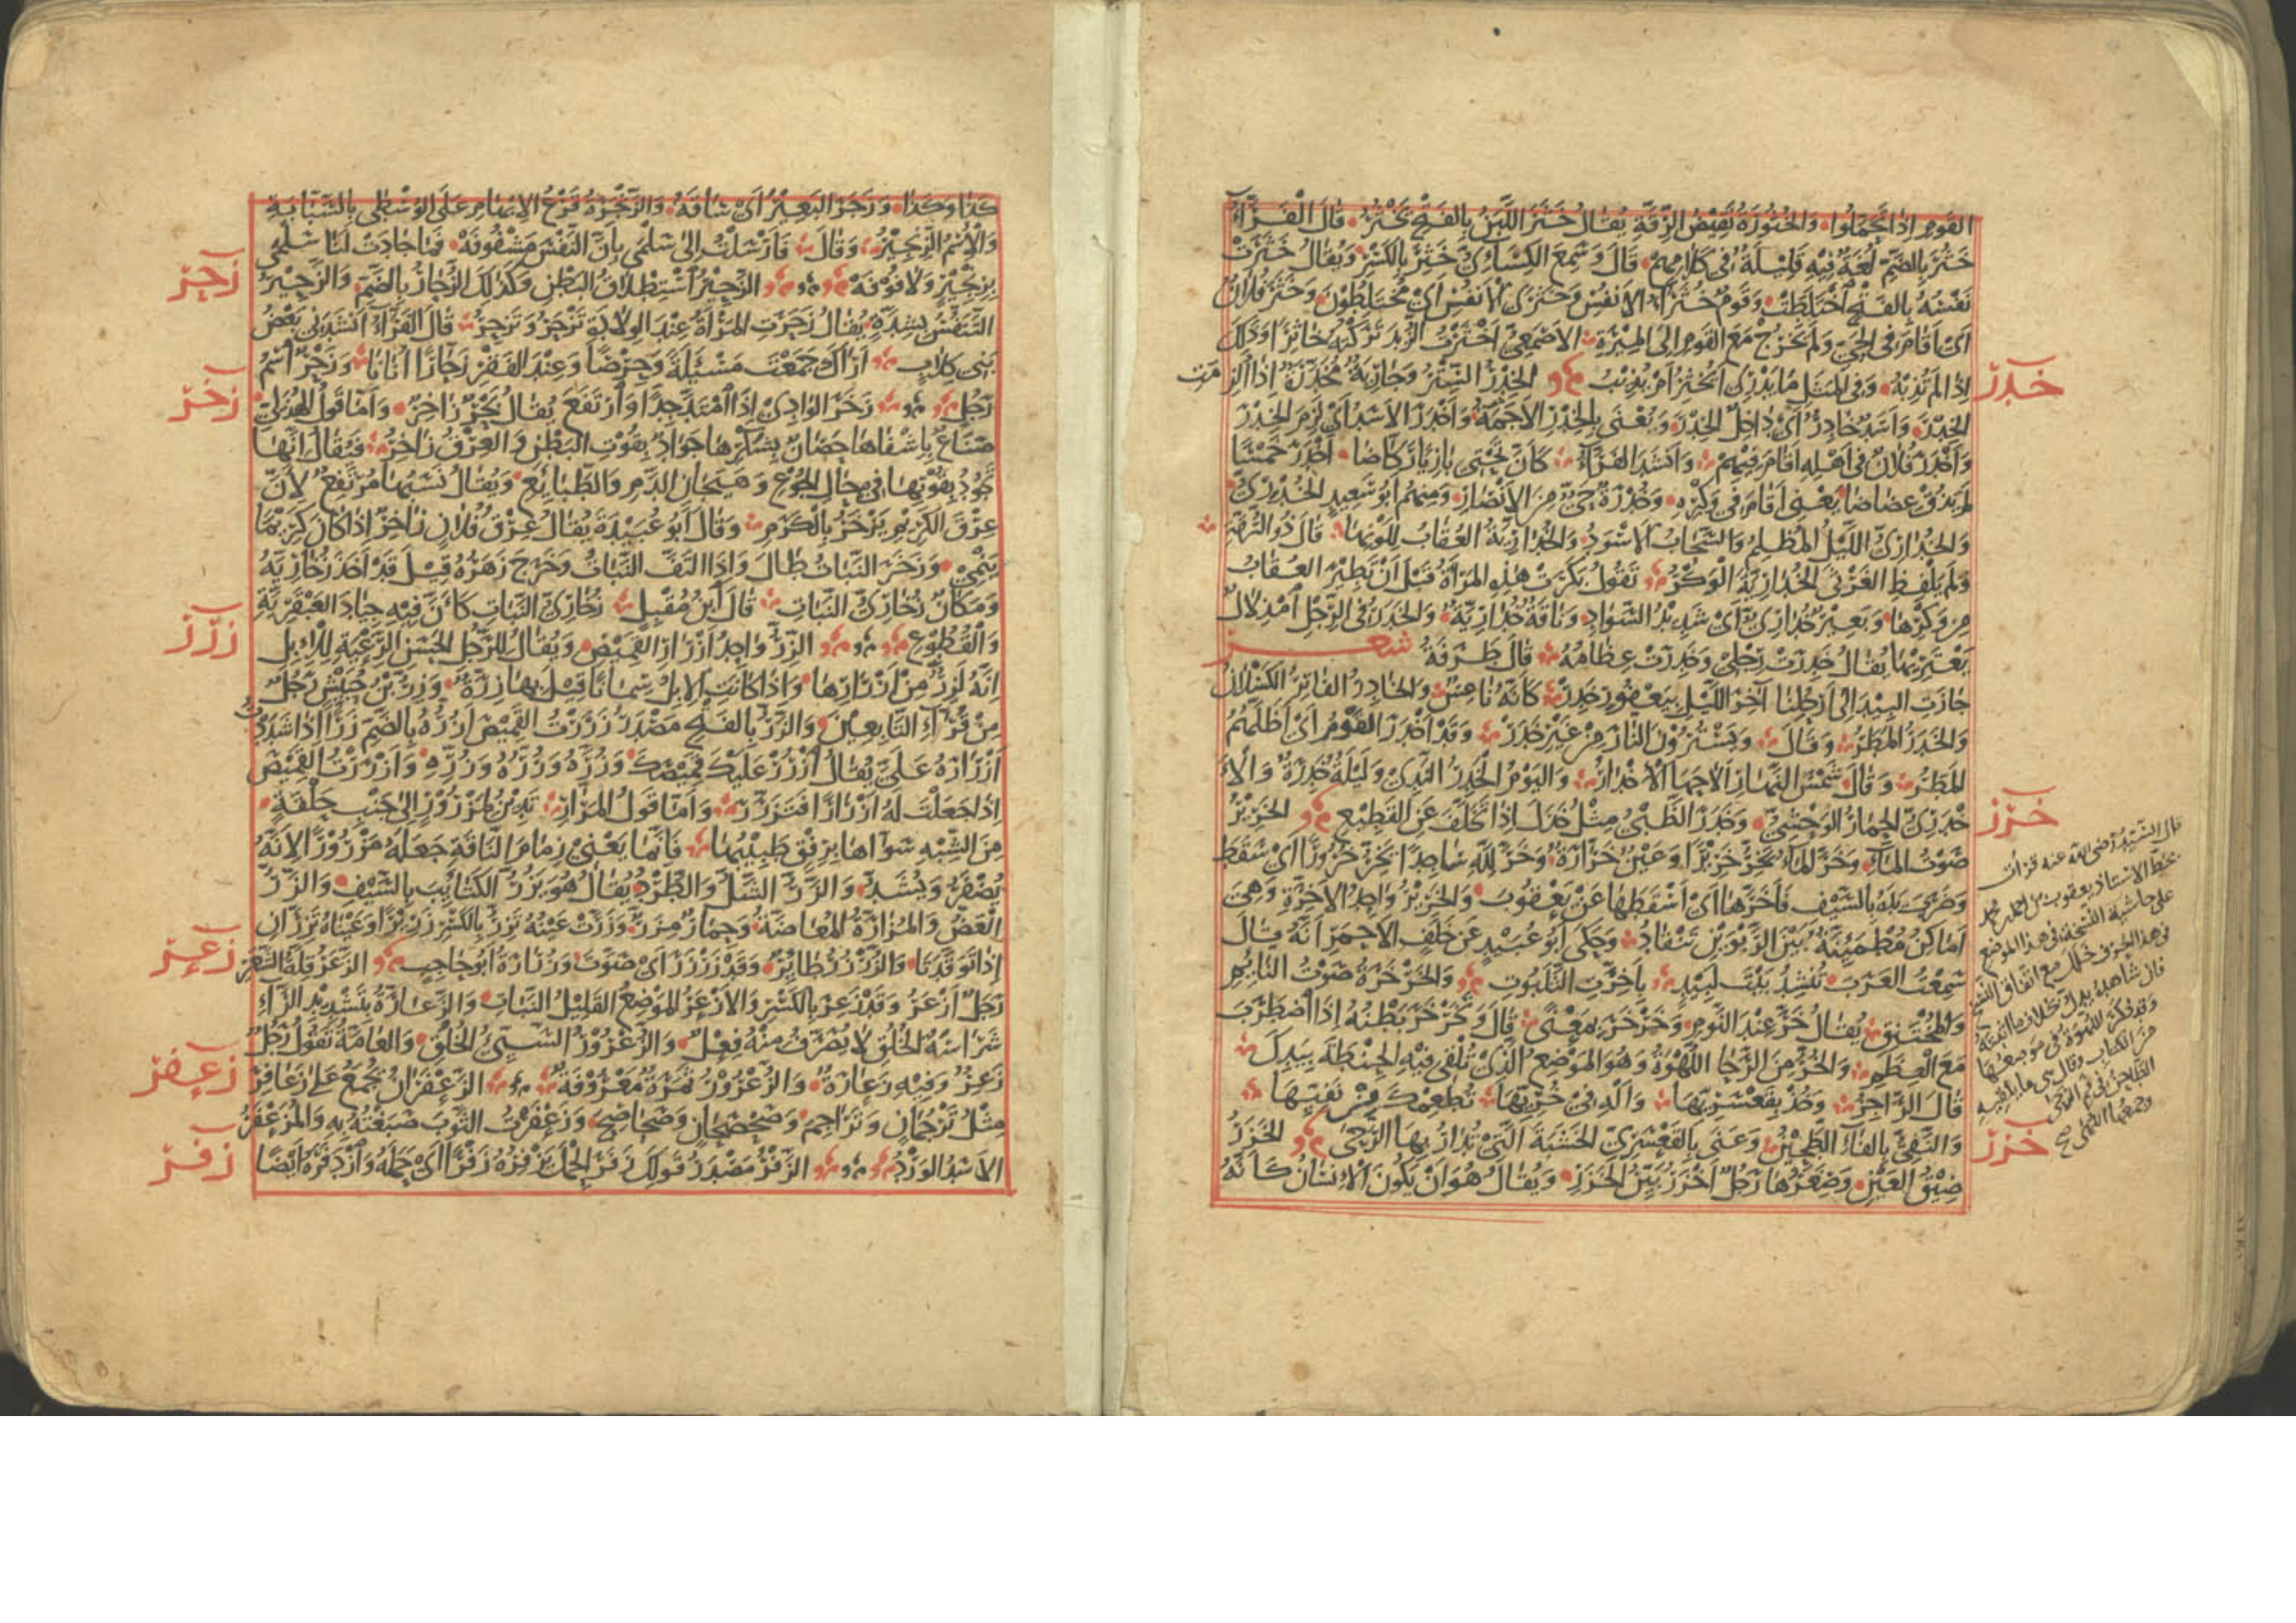 القَوْمِ اِذَا تَجَمَّلُوا وَالخُثُوْرَةُ نَقِيْضُ الرِّقَّةِ يُقَالُ خَثَرَ اللَّبَنُ بِالفَتْحِ يَخْثُرُ قَالَ الْفَرَّاءُ
خَثُرَ بِالضَّمِّ لُغَةٌ فِيْهِ قَلِيْلَةٌ فِى كَلَامِهِمْ قَالَ وَسَمِعَ الكِسَائِيُّ خَثِرَ بِالكَسْرِ وَيُقَالُ خَثَرَتْ
نَفْسُهُ بِالفَتْحِ اخْتَلَطَتْ وَقَوْمٌ خُثَرَاءُ الاَنْفُسِ وَخَثْرَى الاَنْفُسِ اَيْ مُخْتَلِطُوْنَ وَخَثَرَ فُلَانٌ
اَىْ اَقَامَ فِى الحَىِّ وَلَمْ يَخْرُجْ مَعَ القَوْمِ اِلَى المِيْرَةِ الاَصْمَعِىُّ اَخْثَرْتُ الزُّبْدَ تَرَكْتُهُ خَاثِرًا وَذَلِكَ
خدر
اِذَا لَمْ تُذِبْهُ وَفِى المَثَلِ مَا يَدْرِى اَيُخْثِرُ اَمْ يُذِيْبُ الخِدْرُ السِّتْرُ وَجَارِيَةٌ مُخَدَّرَةٌ اِذَا اُلْزِمَت
الخِدْرَ وَاَسَدٌ خَادِرٌ اَىْ دَاخِلُ الخِدْرِ وَيُعْنَى بِالخِدْرِ الاَجَمَةُ وَاَخْدَرَ الاَسَدُ اَىْ لَزِمَ الخِدْرَ
وَاَخْدَرَ فُلَانٌ فِى اَهْلِهِ اَقَامَ فِيْهِمْ وَاَنْشَدَ الفَرَّاءُ كَاَنَّ تَحْتِى بَازِيًا رَكَّاضًا اَخْدَرَ خَمْسًا
لَمْ يَذُقْ عَضَاضًا يَعْنِى اَقَامَ فِى وَكْرِهِ وَخُدْرَةُ حَىٌّ مِنَ الاَنْصَارِ وَمِنْهُمْ اَبُو سَعِيْدٍ الخُدْرِىُّ
وَالخُدَارِىُّ اللَّيْلُ المُظْلِمُ وَالسَّحَابُ الاَسْوَدُ وَالخُدَارِيَّةُ العُقَابُ لِلَوْنِهَا قَالَ ذُو الرُّمَّةِ
وَلَمْ يَلْفِظِ الغَرْثَى الخُدَارِيَّةَ الْوَكْرُ تَقُولُ بَكَرَتْ هٰذِهِ المَرْاَةُ قَبْلَ اَنْ تَطِيْرَ العُقَابُ
مِنْ وَكْرِهَا وَبَعِيْرٌ خُدَارِىٌّ اَىْ شَدِيْدُ السَّوَادِ وَنَاقَةٌ خُدَارِيَّةٌ وَالخَدَرُ فِى الرِّجْلِ امْذِلَالٌ
يَعْتَرِيْهَا يُقَالُ خَدِرَتْ رِجْلِى وَخَدِرَتْ عِظَامُهُ قَالَ طَرَفَةُ شعر
جَازَتِ البِيْدَ اِلَى اَرْحُلِنَا آخِرَ اللَّيْلِ بِيَعْفُوْرٍ خَدِرْ كَاَنَّهُ نَاعِسٌ وَالخَادِرُ الفَاتِرُ الكَسْلَانُ
وَالخَدَرُ المَطَرُ وَقَالَ وَيَسْتُرُوْنَ النَّارَ مِنْ غَيْرِ خَدَرْ وَقَدْ اَخْدَرَ القَوْمُ اَىْ اَظَلَّهُمُ
المَطَرُ وَقَالَ شَمْسُ النَّهَارِ اَلَاحَهَا الاَخْدَارُ وَاليَوْمُ الخَدِرُ النَّدِىُّ وَلَيْلَةٌ خَدِرَةٌ وَالاَ
خرر
خْدَرِىُّ الحِمَارُ الوَحْشِىُّ وَخَدَرَ الظَّبْىُ مِثْلُ خَذَلَ اِذَا تَخَلَّفَ عَنِ القَطِيْعِ الخَرِيْرُ
صَوْتُ المَاءِ وَخَرَّ المَاءُ يَخِرُّ خَرِيْرًا وَعَيْنٌ خَرَّارَةٌ وَخَرَّ لِلّٰهِ سَاجِدًا يَخِرُّ خُرُوْرًا اَىْ سَقَطَ
وَضَرَبَ يَدَهُ بِالسَّيْفِ فَاَخَرَّهَا اَىْ اَسْقَطَهَا عَنْ يَعْقُوبَ وَالخَرِيْرُ وَاحِدُ الاَخِرَّةِ وَهِىَ
اَمَاكِنُ مُطْمَئِنَّةٌ بَيْنَ الرَّبْوَيْنِ تَنْقَادُ وَحَكَى اَبُو عُبَيْدٍ عَنْ خَلَفٍ الاَحْمَرِ اَنَّهُ قَالَ
سَمِعْتُ العَرَبَ تُنْشِدُ بَيْتَ لَبِيْدٍ بِاَخِرَّةِ الثَّلَبُوتِ وَالخَرْخَرَةُ صَوْتُ النَّائِمِ
وَالمُخْتَنِقِ يُقَالُ خَرَّ عِنْدَ النَّوْمِ وَخَرْخَرَ بِمَعْنًى قَالَ وَتَخَرْخَرَ بَطْنُهُ اِذَا اضْطَرَبَ
مَعَ العِظَمِ وَالخُرُّ مِنَ الرَّحَا اللَّهْوَةُ وَهُوَ المَوْضِعُ الَّذِىْ تُلْقِى فِيْهِ الحِنْطَةَ بِيَدِكَ
قَالَ الرَّاجِزُ وَخُذْ بِقَعْسَرِيِّهَا وَاَلْهِ فِىْ خُرِّيِّهَا تُطْعِمْكَ مِنْ نَفِيِّهَا
خزر
وَالنَّفِىُّ بِالفَاءِ الطَّحِيْنُ وَعَنَى بِالقَعْسَرِىِّ الخَشَبَةَ الَّتِىْ تُدَارُ بِهَا الرَّحَى الخَزَرُ
ضِيْقُ العَيْنِ وَصِغَرُهَا رَجُلٌ اَخْزَرُ بَيِّنُ الخَزَرِ وَيُقَالُ هُوَ اَنْ يَكُونَ الْاِنْسَانُ كَاَنَّهُ
قال السيد رضى الله عنه قرأت
بخط الاستاذ يعقوب بن احمد
على حاشية النسخة فى هذا الموضع
فى هذا الحرف خلل مع اتفاق النسخ
كَذَا وَكَذَا وَزَجَرَ البَعِيْرَ اَىْ سَاقَهُ وَالزَّنْجَرَةُ قَرْعُ الاِبْهَامِ عَلَى الوُسْطَى بِالسَّبَّابَةِ
وَالْاِسْمُ الزِّنْجِيْرُ وَقَالَ فَاَرْسَلْتُ اِلَى سَلْمَى بِاَنَّ النَّفْسَ مَشْغُوفَهْ فَمَا جَادَتْ لَنَا سَلْمَى
زحر
بِزِنْجِيْرٍ وَلَا فُوْفَهْ الزَّحِيْرُ اسْتِطْلَاقُ البَطْنِ وَكَذٰلِكَ الزُّحَارُ بِالضَّمِّ وَالزَّحِيْرُ
التَّنَفُّسُ بِشِدَّةٍ يُقَالُ زَحَرَتِ المَرْاَةُ عِنْدَ الوِلَادَةِ تَزْحَرُ وَتَزْحِرُ قَالَ الفَرَّاءُ اَنْشَدَنِى بَعْضُ
بَنِى كِلَابٍ اَرَاكَ جَمَعْتَ مَسْئَلَةً وَحِرْصًا وَعِنْدَ الفَقْرِ زَحَّارًا اُنَانَا وَزَحْرٌ اسْمُ
زخر
رَجُلٍ زَخَرَ الوَادِىْ اِذَا امْتَدَّ جِدًّا وَارْتَفَعَ يُقَالُ بَحْرٌ زَاخِرٌ وَاَمَّا قَوْلُ الهُذَلِىِّ
صَنَاعٌ بِاِشْفَاهَا حَصَانٌ بِشَكْرِهَا جَوَادٌ بِقُوْتِ البَطْنِ وَالعِرْقُ زَاخِرُ فَيُقَالُ اِنَّهَا
تَجُوْدُ بِقُوْتِهَا فِى حَالِ الجُوْعِ وَهَيَجَانِ الدَّمِ وَالطَّبَائِعِ وَيُقَالُ نَسَبُهَا مُرْتَفِعٌ لِاَنَّ
عِرْقَ الكَرِيْمِ يَزْخَرُ بِالْكَرَمِ وَقَالَ اَبُو عُبَيْدَةَ يُقَالُ عِرْقُ فُلَانٍ زَاخِرٌ اِذَا كَانَ كَرِيْمًا
يَنْمِىْ وَزَخَرَ النَّبَاتُ طَالَ وَاِذَا التَفَّ النَّبَاتُ وَخَرَجَ زَهَرُهُ قِيْلَ قَدْ اَخَذَ زُخَارِيَّهُ
وَمَكَانٌ زُخَارِىُّ النَّبَاتِ قَالَ ابْنُ مُقْبِلٍ زُخَارِىَّ النَّبَاتِ كَاَنَّ فِيْهِ جِيَادَ العَبْقَرِيَّةِ
زرر
وَالْقُطُوْعِ الزِّرُّ وَاحِدُ اَزْرَارِ القَمِيْصِ وَيُقَالُ لِلرَّجُلِ الحَسَنِ الرِّعْيَةِ لِلْاِبِلِ
اِنَّهُ لَزِرٌّ مِنْ اَزْرَارِهَا وَاِذَا كَانَتِ الاِبِلُ سِمَانًا قِيْلَ بِهَا زِرَّةٌ وَزِرُّ بْنُ حُبَيْشٍ رَجُلٌ
مِنْ قُرَّاءِ التَّابِعِيْنَ وَالزَّرُّ بِالفَتْحِ مَصْدَرُ زَرَرْتُ القَمِيْصَ اَزُرُّهُ بِالضَّمِّ زَرًّا اِذَا شَدَدْتَ
اَزْرَارَهُ عَلَيْكَ يُقَالُ اُزْرُرْ عَلَيْكَ قَمِيْصَكَ وَزُرَّهُ وَزُرُّهُ وَزُرِّهِ وَاَزْرَرْتُ القَمِيْصَ
اِذَا جَعَلْتَ لَهُ اَزْرَارًا فَتَزَرَّرَ وَاَمَّا قَوْلُ المَرَّارِ تَدِيْنُ لِمَزْرُوْرٍ اِلَى جَنْبِ حَلْقَةٍ
مِنَ الشِّبْهِ سَوَّاهَا بِرِفْقٍ طَبِيْبُهَا فَاِنَّمَا يَعْنِىْ زِمَامَ النَّاقَةِ جَعَلَهُ مَزْرُوْرًا لِاَنَّهُ
يُضْفَرُ وَيُشَدُّ وَالزَّرُّ الشَّلُّ وَالطَّرْدُ يُقَالُ هُوَ يَزُرُّ الكَتَائِبَ بِالسَّيْفِ وَالزَّرُّ
العَضُّ وَالمُزَارَّةُ المُعَاضَّةُ وَحِمَارٌ مِزَرٌّ وَزَرَّتْ عَيْنُهُ تَزِرُّ بِالكَسْرِ زَرِيْرًا وَعَيْنَاهُ تَزِرَّانِ
زعر
اِذَا تَوَقَّدَتَا وَالزُّرْزُرُ طَائِرٌ وَقَدْ زَرْزَرَ اَىْ صَوَّتَ وَزُرَارَةُ اَبُو حَاجِبٍ الزَّعَرُ قِلَّةُ الشَّعَرِ
رَجُلٌ اَزْعَرُ وَقَدْ زَعِرَ بِالكَسْرِ وَالاَزْعَرُ المَوْضِعُ القَلِيْلُ النَّبَاتِ وَالزَّعَارَّةُ بِتَشْدِيْدِ الرَّاءِ
شَرَاسَةُ الخُلُقِ لَا يُصَرَّفُ مِنْهُ فِعْلٌ وَالزُّعْرُوْرُ السَّيِّئُ الخُلُقِ وَالعَامَّةُ تَقُوْلُ رَجُلٌ
زعفر
زَعِرٌ وَفِيْهِ زَعَارَةٌ وَالزُّعْرُوْرُ ثَمَرَةٌ مَعْرُوْفَةٌ الزَّعْفَرَانُ يُجْمَعُ عَلَى زَعَافِرَ
مِثْلُ تَرْجُمَانٍ وَتَرَاجِمَ وَصَحْصَحَانٍ وَصَحَاصِحَ وَزَعْفَرْتُ الثَّوْبَ صَبَغْتُهُ بِهِ وَالمُزَعْفَرُ
زفر
الاَسَدُ الوَرْدُ الزَّفْرُ مَصْدَرُ قَوْلِكَ زَفَرَ الحِمْلَ يَزْفِرُهُ زَفْرًا اَىْ حَمَلَهُ وَازْدَفَرَهُ اَيْضًا